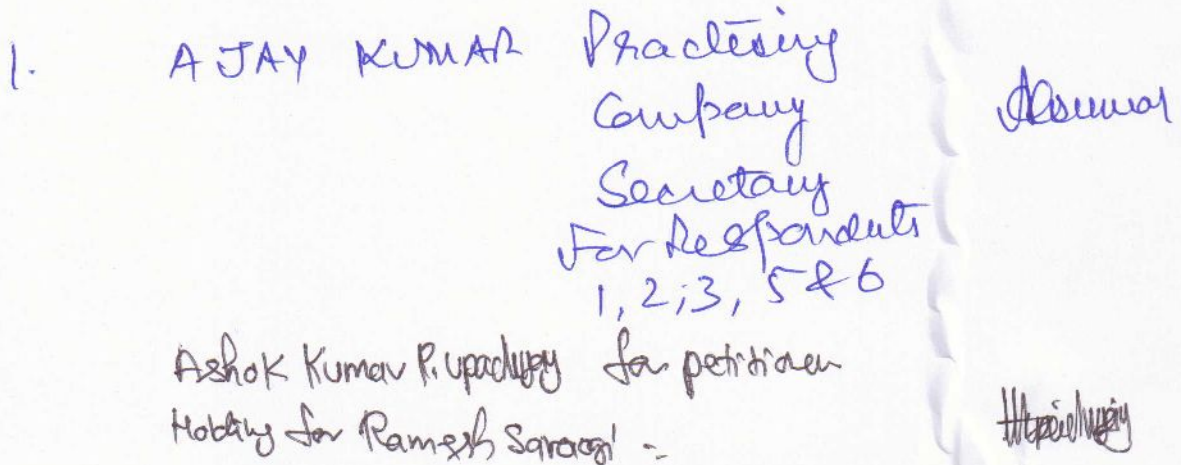 1. AJAY KUMAR Practising
Company
Secretary
For Respondents
1, 2, 3, 5 & 6
Ashok Kumar P. Upadhyay for petitioner
Holding for Ramesh Saraogi -